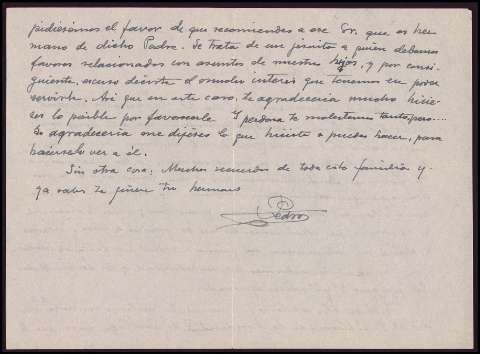 pidiésemos el favor de que recomiendes a ese Sr. que es her
mano de dicho Padre. Se trata de un jesuita a quien debemos
favores relacionados con asuntos de nuestros hijos, y por consi-
guiente, excuso decirte el sumo interés que tenemos en poder
servirle. Así que en este caso, te agradecería mucho hicie-
ses lo posible por favorecerle. Y perdona te molestemos tanto, pero...
Te agradecería me dijeses lo que hiciste o puedas hacer, para
hacérselo ver a él.
Sin otra cosa, Muchos recuerdos de toda esta familia y
ya sabes te quiere tu hermano
Pedro